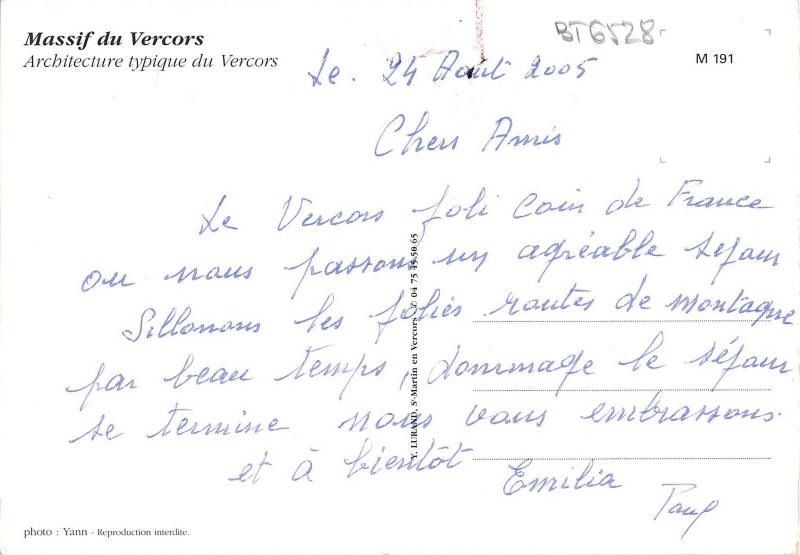 Massif du Vercors
Architecture typique du Vercors
BT6528
M 191
Le. 24 Août 2005
Chers Amis
Le Vercors joli coin de France
ou nous passons un agréable séjour
Sillonons les jolies routes de montagne
par beau temps, dommage le séjour
se termine nous vous embrassons.
et à bientôt
Emilia
Paul
Y. LURAND, St-Martin en Vercors ✆ 04 75 45 50 65
photo : Yann - Reproduction interdite.